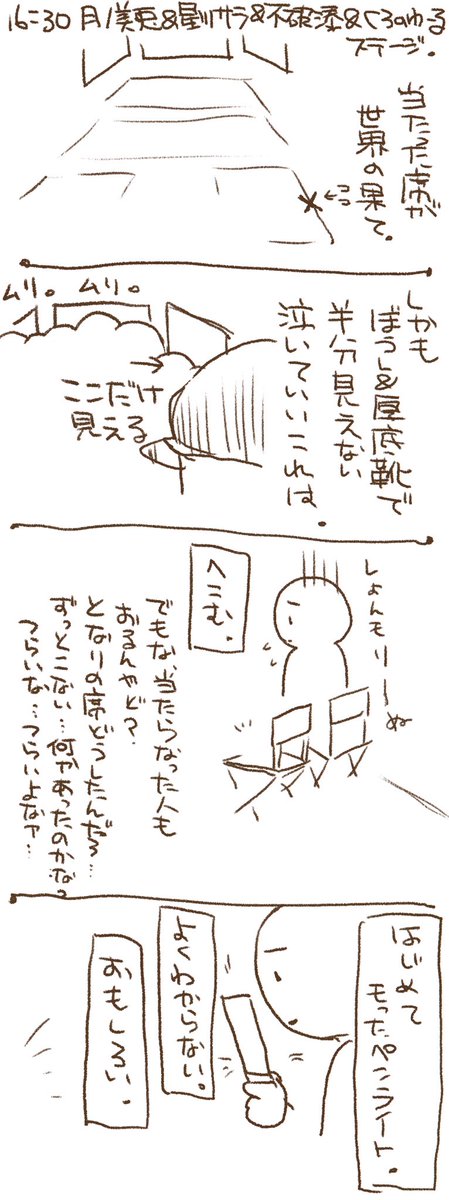 16:30 月ノ美兎&星川サラ&不破湊&くろのわーる
ステージ。
当たった席が
世界の果て。
←ココ
しかも
ぼうし&厚底靴で
半分見えない
泣いていいこれは。
ムリ。
ムリ。
→
ここだけ
見える
しょんもりーぬ
へこむ。
でもな、当たらなった人も
おるんやど?
となりの席どうしたんだろ…
ずっとこない…何かあったのかな?
つらいな…つらいよなァ…
はじめて
もったペンライト。
よくわからない。
おもしろい。